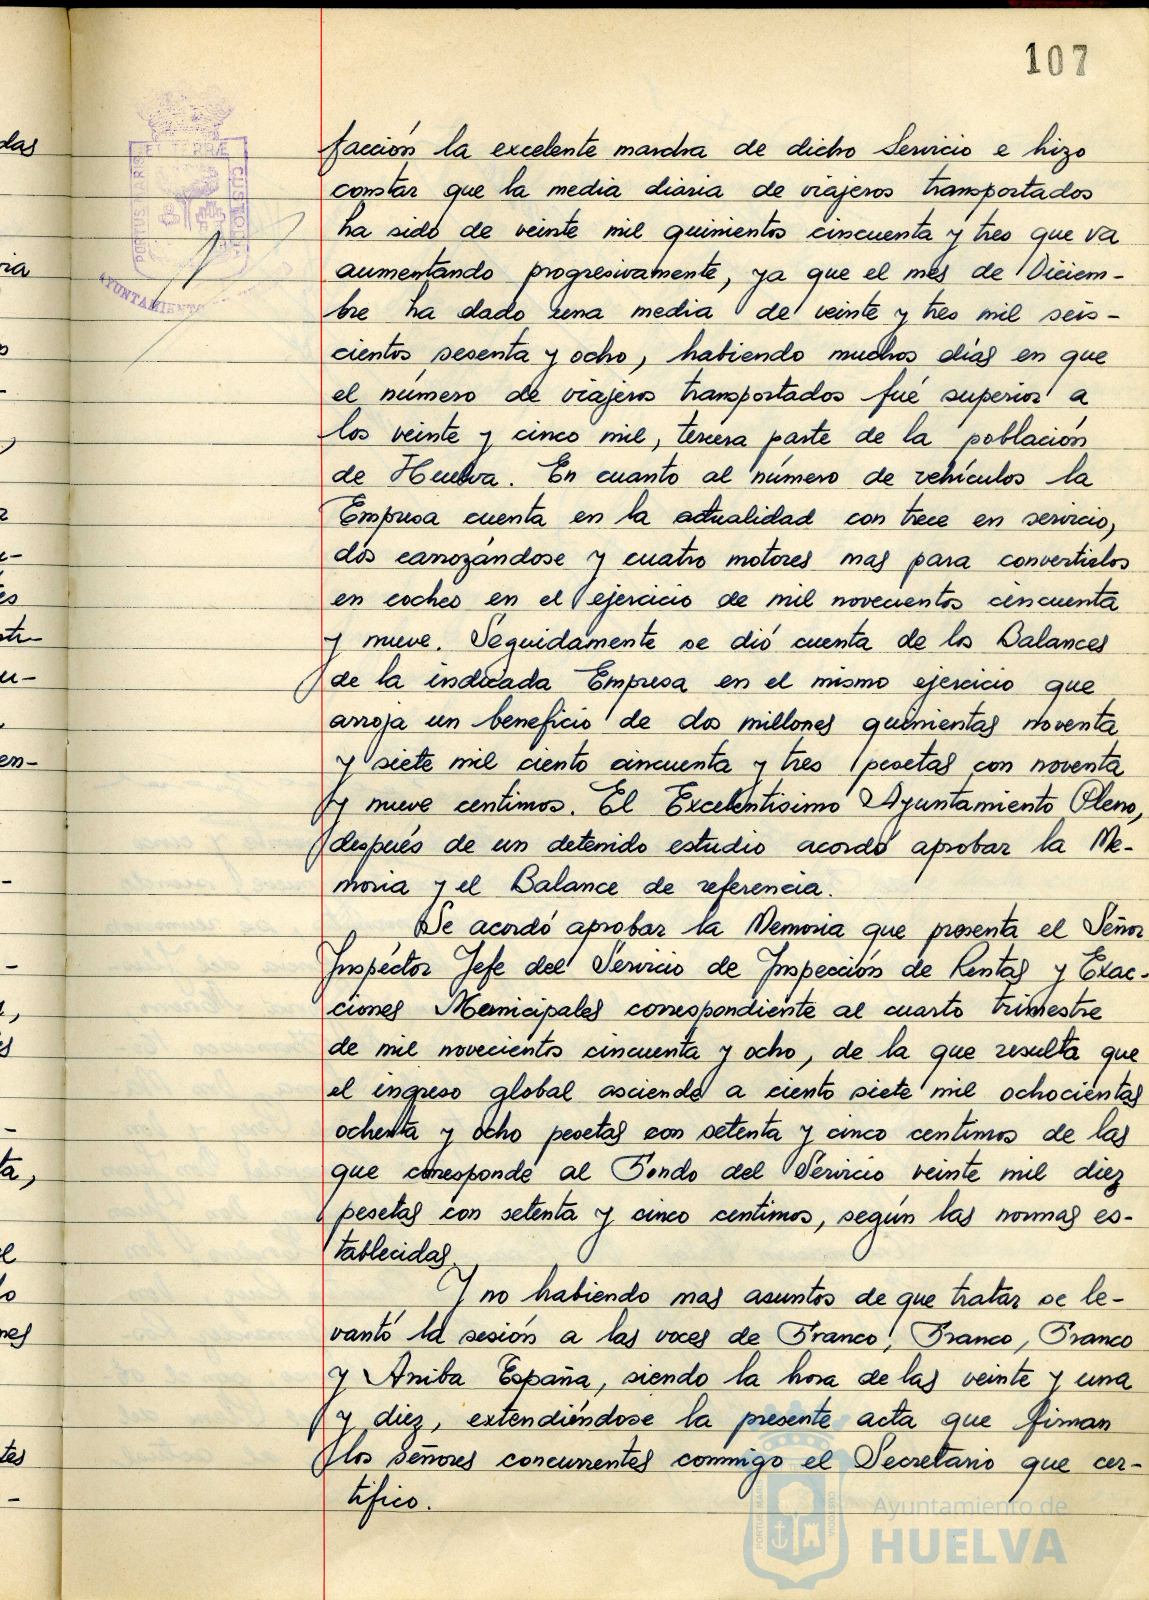 107
facción la excelente marcha de dicho Servicio e hizo
constar que la media diaria de viajeros transportados
ha sido de veinte mil quinientos cincuenta y tres que va
aumentando progresivamente, ya que el mes de Diciem-
bre ha dado una media de veinte y tres mil seis-
cientos sesenta y ocho, habiendo muchos días en que
el número de viajeros transportados fué superior a
los veinte y cinco mil, tercera parte de la población
de Huelva. En cuanto al número de vehículos la
Empresa cuenta en la actualidad con trece en servicio,
dos carrozándose y cuatro motores mas para convertirlos
en coches en el ejercicio de mil novecientos cincuenta
y nueve. Seguidamente se dió cuenta de los Balances
de la indicada Empresa en el mismo ejercicio que
arroja un beneficio de dos millones quinientas noventa
y siete mil ciento cincuenta y tres pesetas con noventa
y nueve centimos. El Excelentisimo Ayuntamiento Pleno,
después de un detenido estudio acordó aprobar la Me-
moria y el Balance de referencia.
Se acordó aprobar la Memoria que presenta el Señor
Inspéctor Jefe del Servicio de Inspección de Rentas y Exac-
ciones Municipales correspondiente al cuarto trimestre
de mil novecientos cincuenta y ocho, de la que resulta que
el ingreso global asciende a ciento siete mil ochocientas
ochenta y ocho pesetas con setenta y cinco centimos de las
que corresponde al Fondo del Servicio veinte mil diez
pesetas con setenta y cinco centimos, según las normas es-
tablecidas.
Y no habiendo mas asuntos de que tratar se le-
vantó la sesión a las voces de Franco, Franco, Franco
y Arriba España, siendo la hora de las veinte y una
y diez, extendiéndose la presente acta que firman
los señores concurrentes conmigo el Secretario que cer-
tifico.
Ayuntamiento de
HUELVA